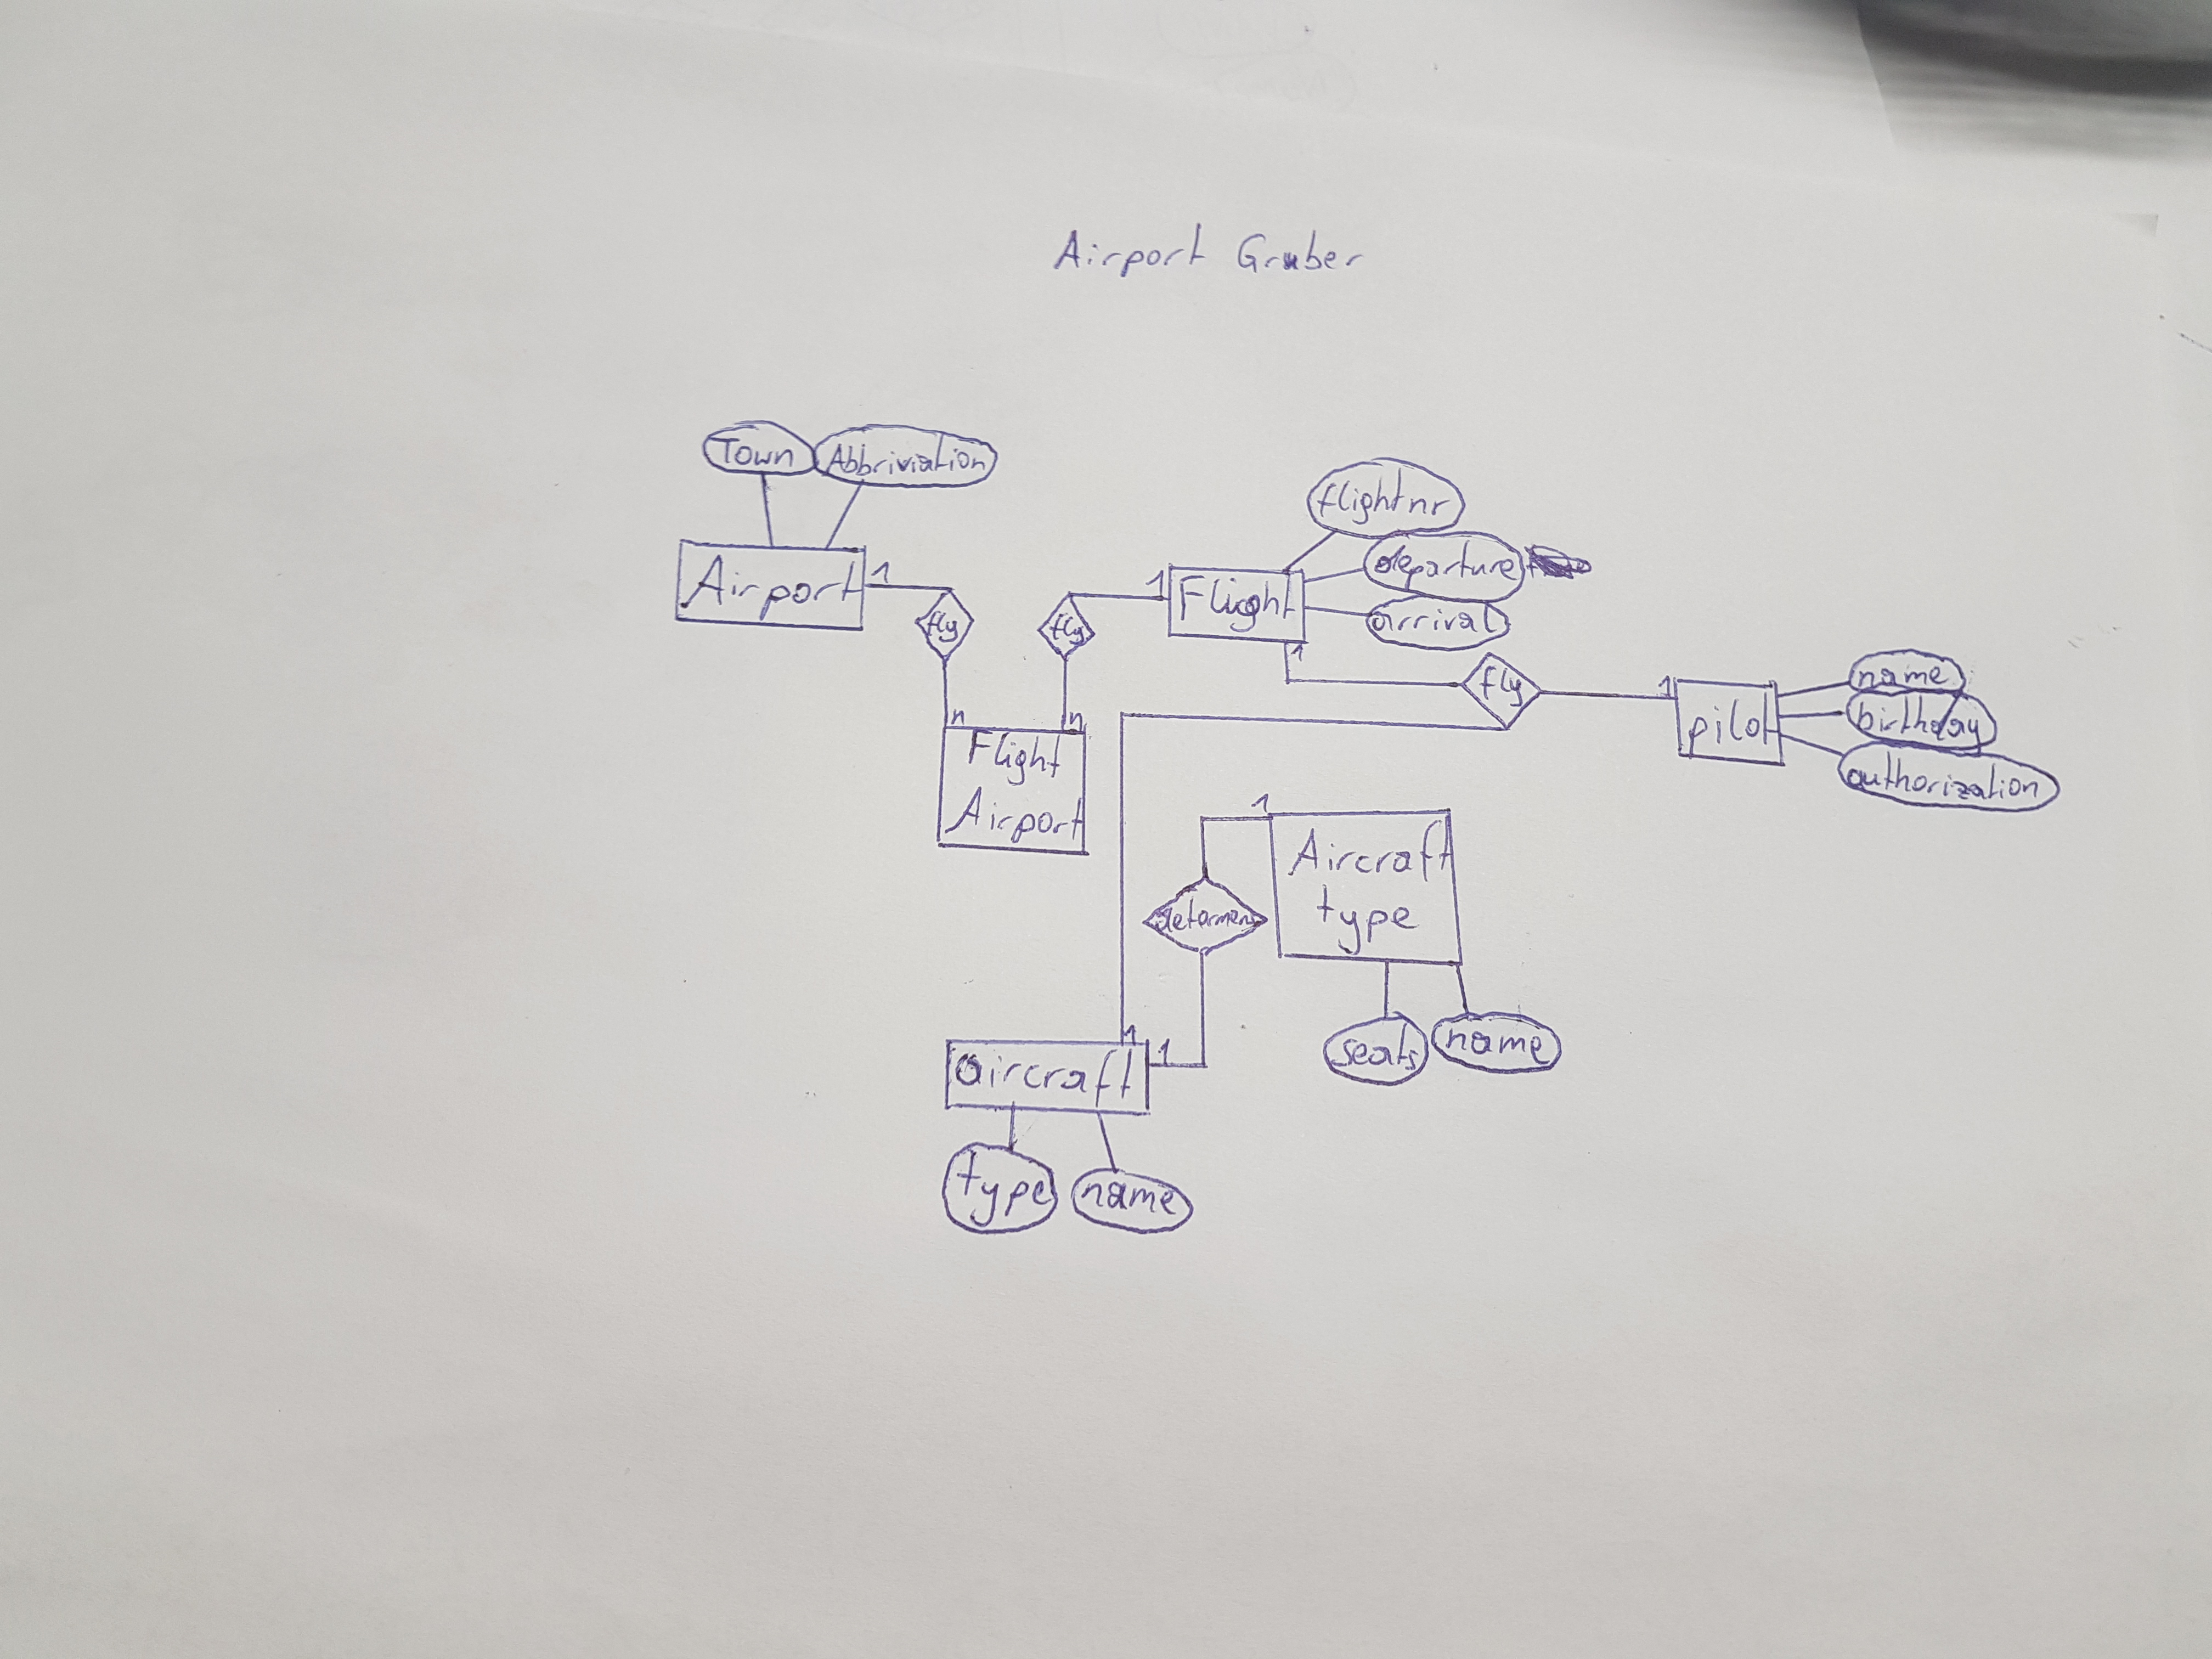 Airport Gruber
Town
Abbriviation
Airport
1
fly
n
Flight
Airport
n
fly
1
Flight
1
flightnr
departure
arrival
fly
1
pilot
name
birthday
authorization
aircraft
1
1
type
name
1
Aircraft
type
seats
name